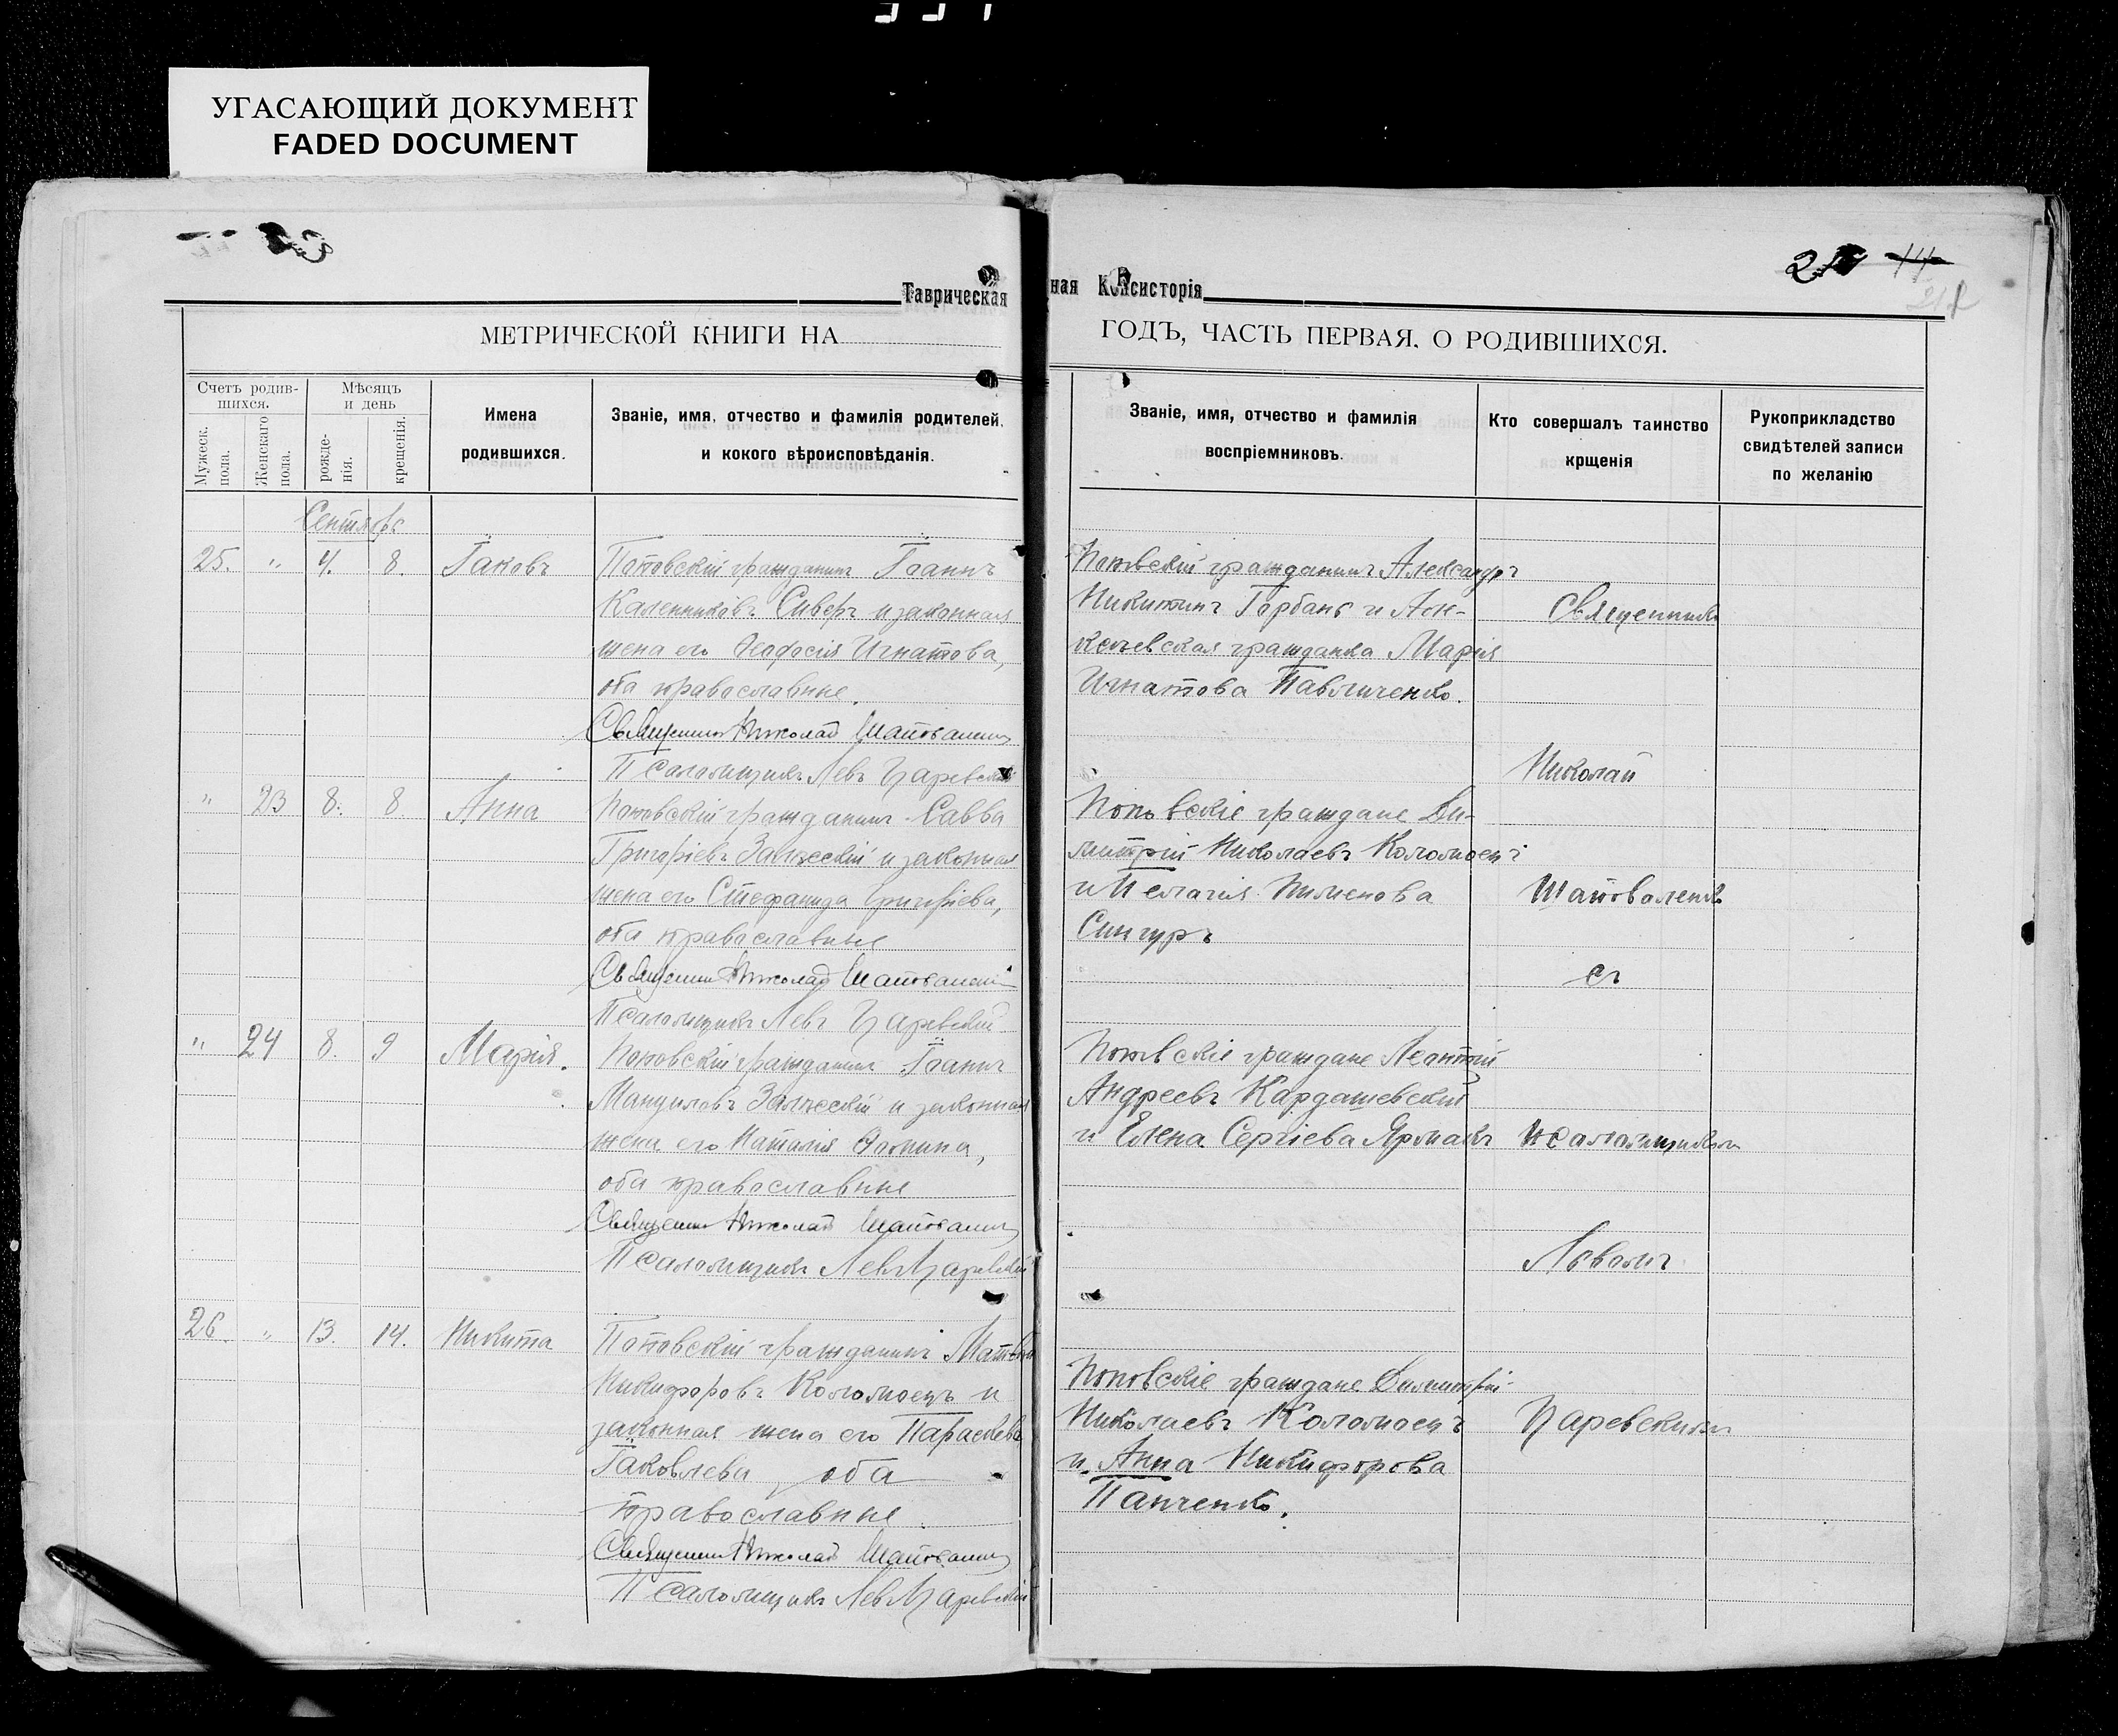 УГАСАЮЩИЙ ДОКУМЕНТ
FADED DOCUMENT
Таврическая
МЕТРИЧЕСКОЙ КНИГИ НА
Счетъ родив-
шихся.
Мужеск.
пола.
Женскаго
пола.
Мѣсяцъ
и день
рожде-
нія.
крещенія.
Имена
родившихся.
Званіе, имя, отчество и фамилія родителей,
и кокого вѣроисповѣданія.
Сентябрь
25. " 7. 8. Іаковъ Поповскій гражданинъ Іоаннъ
Каленниковъ Сиверъ и законная
жена его Ѳеодосія Игнатова,
оба православные.
Священник Николай Шаповаленко
Псаломщикъ Левъ Царевскій
" 23 8. 8. Анна Поповскій гражданинъ Савва
Григоріевъ Залѣсскій и законная
жена его Стефанида Григоріева,
оба православные
Священник Николай Шаповаленко
Псаломщикъ Левъ Царевскій
" 24 8. 9 Марія. Поповскій гражданинъ Іоаннъ
Мануиловъ Залѣсскій и законная
жена его Наталія Ѳомина,
оба православные
Священник Николай Шаповаленко
Псаломщикъ Левъ Царевскій
26. " 13. 14. Никита Поповскій гражданинъ Матвѣй
Никифоровъ Коломоецъ и
законная жена его Параскева
Іаковлева, оба
православные.
Священник Николай Шаповаленко
Псаломщикъ Левъ Царевскій
ная Консисторія
ГОДЪ, ЧАСТЬ ПЕРВАЯ, О РОДИВШИХСЯ.
Званіе, имя, отчество и фамилія
воспріемниковъ.
Кто совершалъ таинство
крщенія
Рукоприкладство
свидѣтелей записи
по желанію
Поповскій гражданинъ Александръ
Никитинъ Горбань и
гражданка Марія
Игнатова Павличенко.
Поповскіе граждане Ди-
митрій Николаевъ Коломоецъ
и Пелагія Пименова
Сингуръ
Поповскіе граждане Леонтій
Андреевъ Кардашевскій
и Елена Сергіева Ярмакъ
Поповскіе граждане Димитрій
Николаевъ Коломоецъ
и Анна Никифорова
Панченко.
Священникъ
Николай
Шаповаленко
съ
псаломщикомъ
Львомъ
Царевскимъ